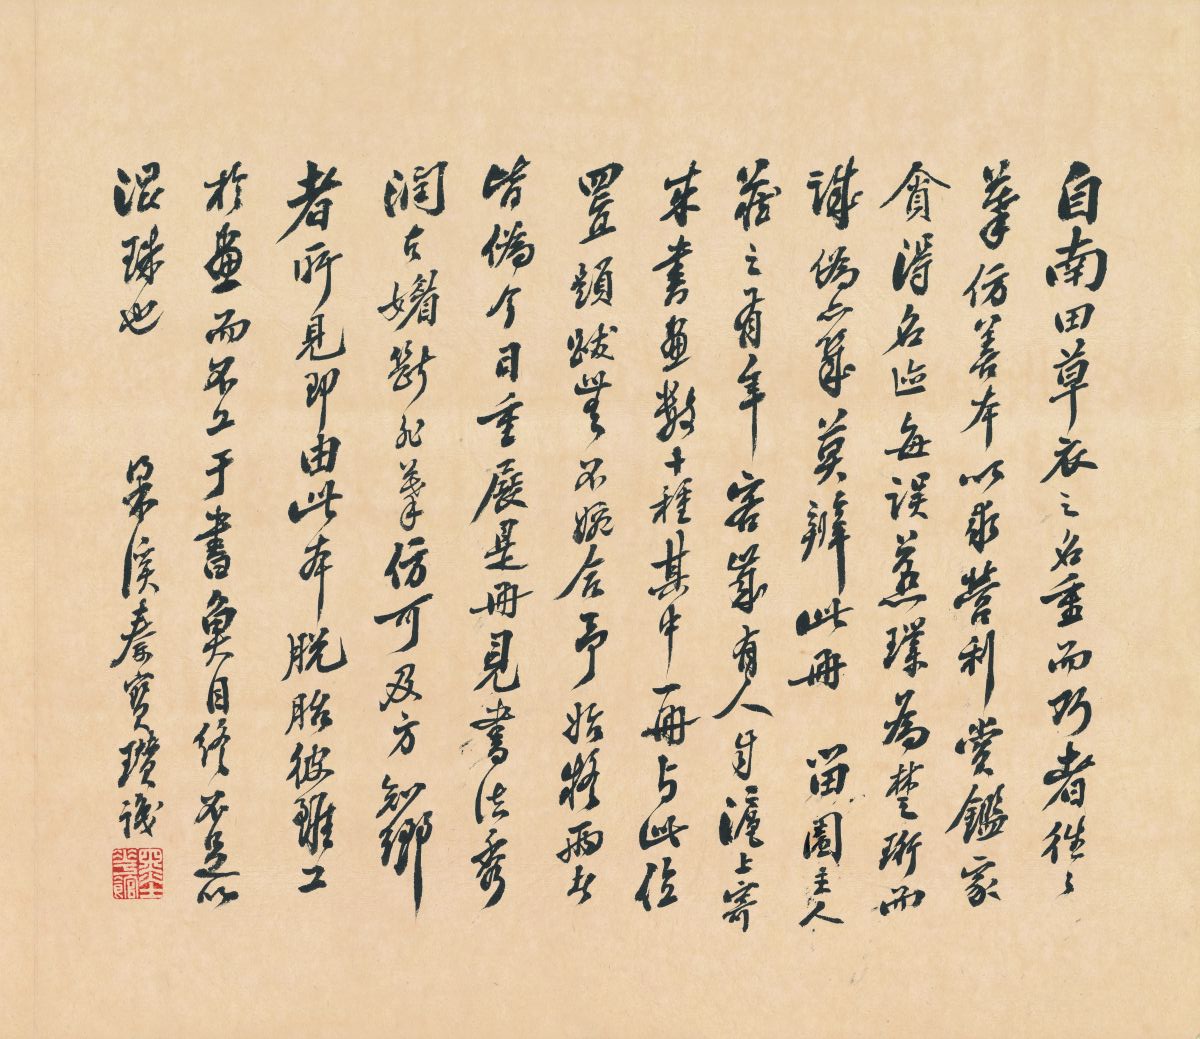 自南田草衣之名重而巧者往往
摹仿善本以求營利賞鑑家
貪得名迹每誤燕璞為楚珩而
誠偽亦幾莫辨此冊 留園主人
藏之有年客歲有人自滬上寄
來書畫數十種其中一冊与此位
置題跋無不婉合予始疑兩者
皆偽今日重展是冊見書法秀
潤古媚斷非摹仿可及方知鄉
者所見即由此本脫胎彼雖工
於畫而不工于書魚目終不足以
混珠也 曼溪秦寶瓚識